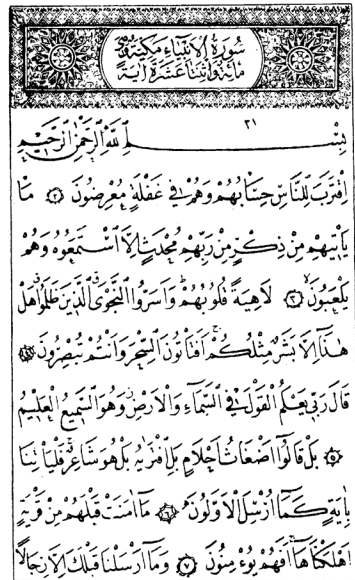 سورة الانبياء مكية وهى
مائة واثنتا عشرة اية
٢١
بِسْمِ اللّٰهِ الرَّحْمٰنِ الرَّحٖيمِ
اِقْتَرَبَ لِلنَّاسِ حِسَابُهُمْ وَهُمْ فٖى غَفْلَةٍ مُعْرِضُونَ ﴿٢﴾ مَا
يَاْتٖيهِمْ مِنْ ذِكْرٍ مِنْ رَبِّهِمْ مُحْدَثٍ اِلَّا اسْتَمَعُوهُ وَهُمْ
يَلْعَبُونَ ﴿٣﴾ لَاهِيَةً قُلُوبُهُمْ وَاَسَرُّوا النَّجْوٰى الَّذٖينَ ظَلَمُوا هَلْ
هٰذَا اِلَّا بَشَرٌ مِثْلُكُمْ اَفَتَاْتُونَ السِّحْرَ وَاَنْتُمْ تُبْصِرُونَ ﴿٤﴾
قَالَ رَبّٖى يَعْلَمُ الْقَوْلَ فِى السَّمَاءِ وَالْاَرْضِ وَهُوَ السَّمٖيعُ الْعَلٖيمُ
﴿٥﴾ بَلْ قَالُوا اَضْغَاثُ اَحْلَامٍ بَلِ افْتَرٰيهُ بَلْ هُوَ شَاعِرٌ فَلْيَاْتِنَا
بِاٰيَةٍ كَمَا اُرْسِلَ الْاَوَّلُونَ ﴿٦﴾ مَا اٰمَنَتْ قَبْلَهُمْ مِنْ قَرْيَةٍ
اَهْلَكْنَاهَا اَفَهُمْ يُؤْمِنُونَ ﴿٧﴾ وَمَا اَرْسَلْنَا قَبْلَكَ اِلَّا رِجَالًا